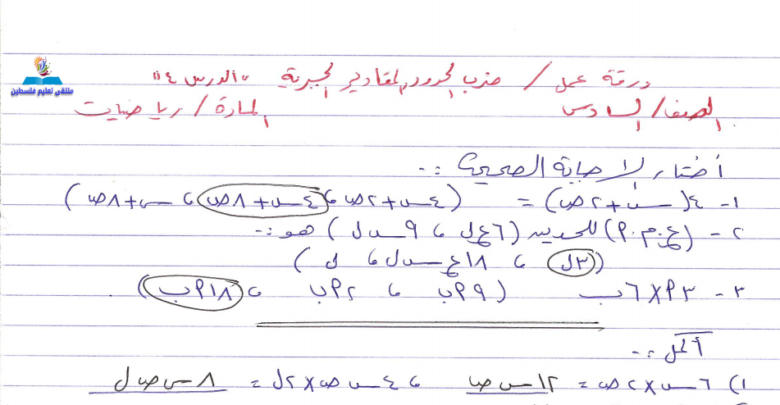 ملتقى تعليم فلسطين
ورقة عمل / ضرب الحدود والمقادير الجبرية "الدرس ٤"
الصف / السادس المادة / رياضيات
أختار الإجابة الصحيحة :-
١- ٤(س+٢ص) = (٤س+٢ص ، ٤س+٨ص ، س+٨ص)
٢- (ع.م.أ) للحدين (٦ع ل ، ٩س ل) هو :-
(٣ل ، ١٨ع س ل ، ل)
٣- ٣أ×٦ب (٩أب ، ٢أب ، ١٨أب)
أكمل :-
١) ٦س×٢ص = ١٢س ص ، ٤س ص×٢ل = ٨س ص ل